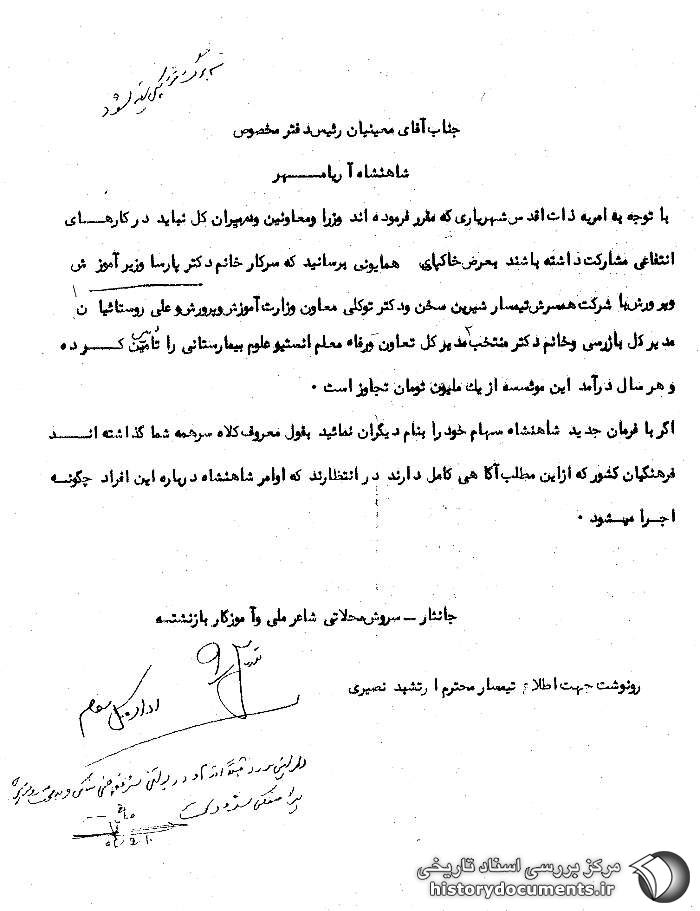 جناب آقای معینیان رئیس دفتر مخصوص
شاهنشاه آریامهر
با توجه به امریه ذات اقدس شهریاری که مقرر فرموده اند وزرا ومعاونین ومدیران کل نباید در کارهای
انتفاعی مشارکت داشته باشند بعرض خاکپای همایونی برسانید که سرکار خانم دکتر پارسا وزیر آموزش
وپرورش با شرکت همسرش تیمسار شیرین سخن ودکتر توکلی معاون وزارت آموزش وپرورش و علی روستائیان
مدیر کل بازرسی وخانم دکتر منتخب مدیر کل تعاون ورفاه معلم انستیو علوم بیمارستانی را تأسیس کرده
و هر سال درآمد این موئسسه از یک ملیون تومان تجاوز است .
اگر با فرمان جدید شاهنشاه سهام خود را بنام دیگران نمائید بقول معروف کلاه سرهمه شما گذاشته اند
فرهنگیان کشور که از این مطلب آگاهی کامل دارند در انتظارند که اوامر شاهنشاه درباره این افراد چگونه
اجرا میشود .
جانثار – سروش محلاتی شاعر ملی وآموزگار بازنشسته
رونوشت جهت اطلاع تیمسار محترم ارتشبد نصیری
اداره کل سوم
مرکز بررسی اسناد تاریخی
historydocuments.ir